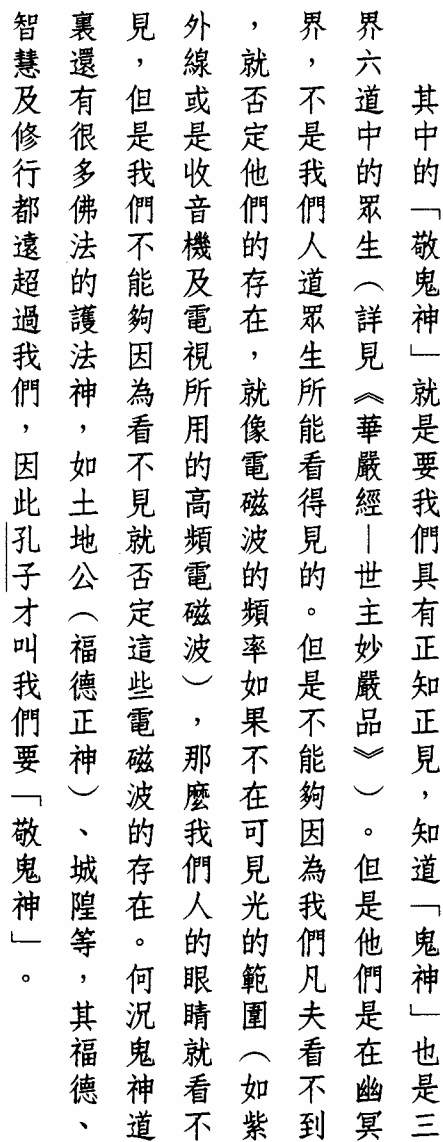 其中的「敬鬼神」就是要我們具有正知正見，知道「鬼神」也是三
界六道中的眾生（詳見《華嚴經－世主妙嚴品》）。但是他們是在幽冥
界，不是我們人道眾生所能看得見的。但是不能夠因為我們凡夫看不到
，就否定他們的存在，就像電磁波的頻率如果不在可見光的範圍（如紫
外線或是收音機及電視所用的高頻電磁波），那麼我們人的眼睛就看不
見，但是我們不能夠因為看不見就否定這些電磁波的存在。何況鬼神道
裏還有很多佛法的護法神，如土地公（福德正神）、城隍等，其福德、
智慧及修行都遠超過我們，因此孔子才叫我們要「敬鬼神」。